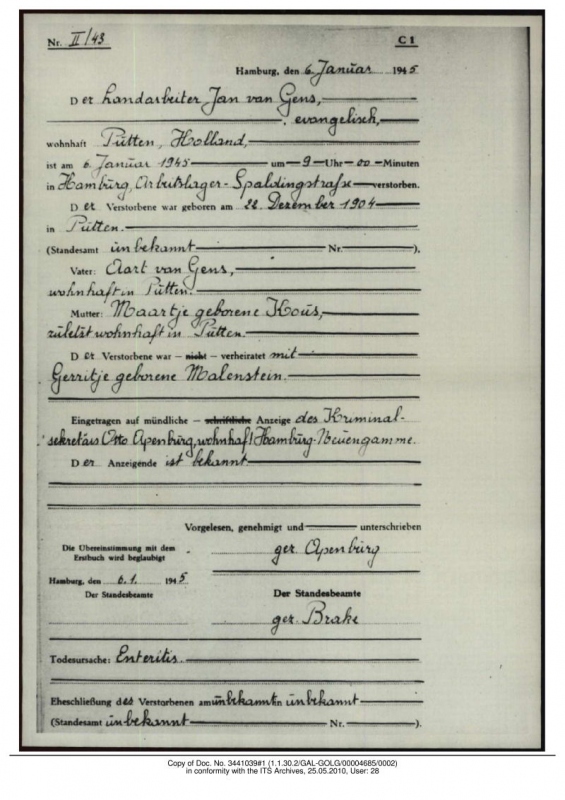 Nr. II/43 C 1
Hamburg, den 6. Januar 1945
Der Handarbeiter Jan van Gens,
evangelisch,
wohnhaft Putten, Holland,
ist am 6. Januar 1945 um 9 Uhr 00 Minuten
in Hamburg, Arbeitslager-Spaldingstraße verstorben.
Der Verstorbene war geboren am 22 Dezember 1904
in Putten.
(Standesamt unbekannt Nr. ).
Vater: Aart van Gens,
wohnhaft in Putten.
Mutter: Maartje geborene Kous,
zuletzt wohnhaft in Putten.
Der Verstorbene war – nicht – verheiratet mit
Gerritje geborene Malenstein.
Eingetragen auf mündliche – schriftliche Anzeige des Kriminal-
sekretärs Otto Apenburg, wohnhaft Hamburg-Neuengamme.
Der Anzeigende ist bekannt
Vorgelesen, genehmigt und unterschrieben
Die Übereinstimmung mit dem
Erstbuch wird beglaubigt
gez. Apenburg
Hamburg, den 6.1. 1945
Der Standesbeamte
Der Standesbeamte
gez. Brake
Todesursache: Enteritis.
Eheschließung des Verstorbenen am unbekannt in unbekannt
(Standesamt unbekannt Nr. ).
Copy of Doc. No. 3441039#1 (1.1.30.2/GAL-GOLG/00004685/0002)
in conformity with the ITS Archives, 25.05.2010, User: 28